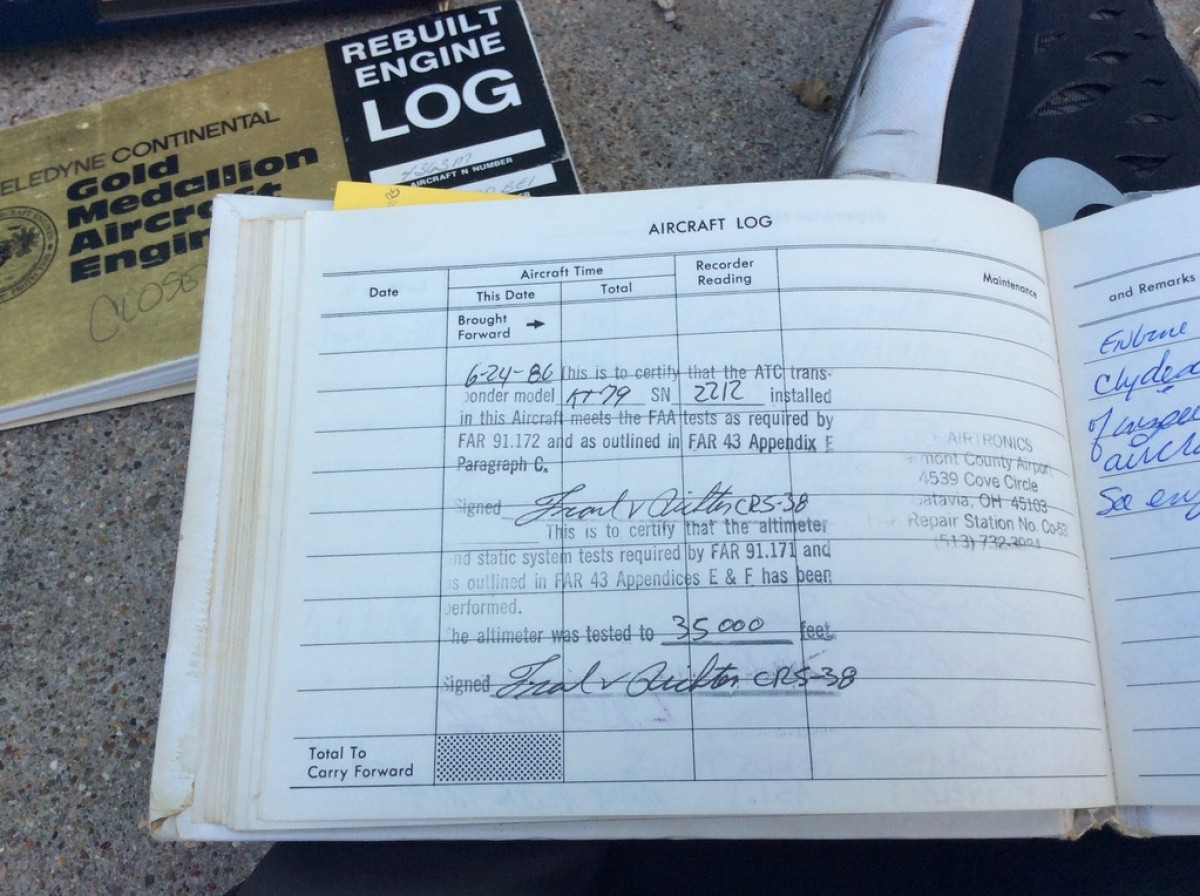 REBUILT
ENGINE
LOG
AIRCRAFT N NUMBER
TELEDYNE CONTINENTAL
Gold
Medallion
Aircr
Engin
CLOSE
AIRCRAFT LOG
Date
Aircraft Time
This Date
Total
Recorder
Reading
Maintenance
and Remarks
Brought
Forward
6-24-86 This is to certify that the ATC trans-
ponder model KT79 SN 2212 installed
in this Aircraft meets the FAA tests as required by
FAR 91.172 and as outlined in FAR 43 Appendix E
Paragraph C.
Signed CRS-38
This is to certify that the altimeter
nd static system tests required by FAR 91.171 and
as outlined in FAR 43 Appendices E & F has been
performed.
The altimeter was tested to 35000 feet
Signed CRS-38
AIRTRONICS
mont County Airport
4539 Cove Circle
Batavia, OH 45103
Repair Station No.
(513) 732-
Total To
Carry Forward
Engine
Clyde
of
aircra
See eng